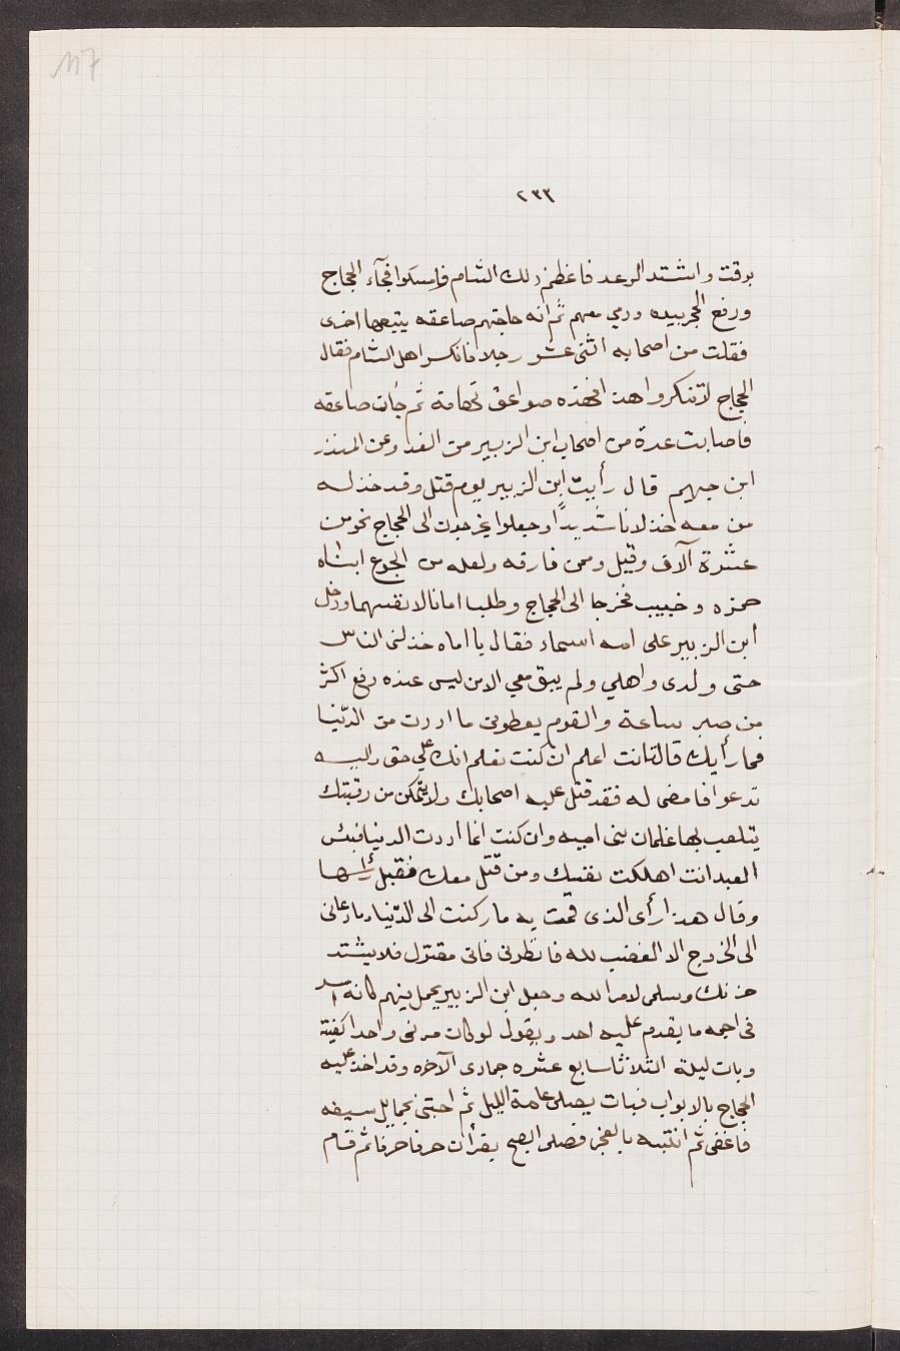 117
٢٣٣
برقت واشتد الرعد فاعظم ذلك الشام فامسكوا فجآء الحجاج
ورفع الحجر بيده ورمي معهم ثم انه جاءتهم صاعقه يتبعها اخرى
فقلت من اصحابه اثنى عشر رجلا فانكسر اهل الشام فقال
الحجاج لا تنكروا هذا فهذه صواعق تهامة ثم جأت صاعقه
فاصابت عدة من اصحاب ابن الزبير من الغد وعن المنذر
ابن جهم قال رأيت ابن الزبير يوم قتل وقد خذله
من معه خذلانا شديدًا وجعلوا يخرجون الى الحجاج نحو من
عشرة آلاف وقيل وممن فارقه ولعله من الجوع ابناه
حمزه وخبيب فخرجا الى الحجاج وطلبا امانا لانفسهما ودخل
ابن الزبير على امه اسماء فقال يا اماه خذلنى الناس
حتى ولدى واهلي ولم يبق معي الا من ليس عنده دفع اكثر
من صبر ساعة والقوم يعطونى ما اردت من الدّنيا
فما رأيك قالت انت اعلم ان كنت تعلم انك على حق واليه
تدعوا فامضى له فقد قتل عليه اصحابك ولا يتمكن من رقبتك
يتلعب بها غلمان بنى اميه وان كنت انما اردت الدنيا فبئس
العبد انت اهلكت نفسك ومن قتل معك فقبل رأسها
وقال هذا رأى الذى قمت به ما ركنت الى الدّنيا وما دعانى
الى الخروج الا الغضب لله فانظرنى فانى مقتول فلا يشتد
حزنك وسلمى لامر الله وجعل ابن الزبير يحمل فيهم كانه اسد
فى اجمه ما يقدم عليه احد ويقول لو كان قرنى واحدا كفيته
وبات ليلة الثلاثا سابع عشره جمادى الآخره وقد اخذ عليه
الحجاج بالابواب فبات يصلى عامة الليل ثم احتبى بحمايل سيفه
فاغفى ثم انتبه بالفجر فصلى الصبح يقرأ ن حرفا حرفا ثم قام